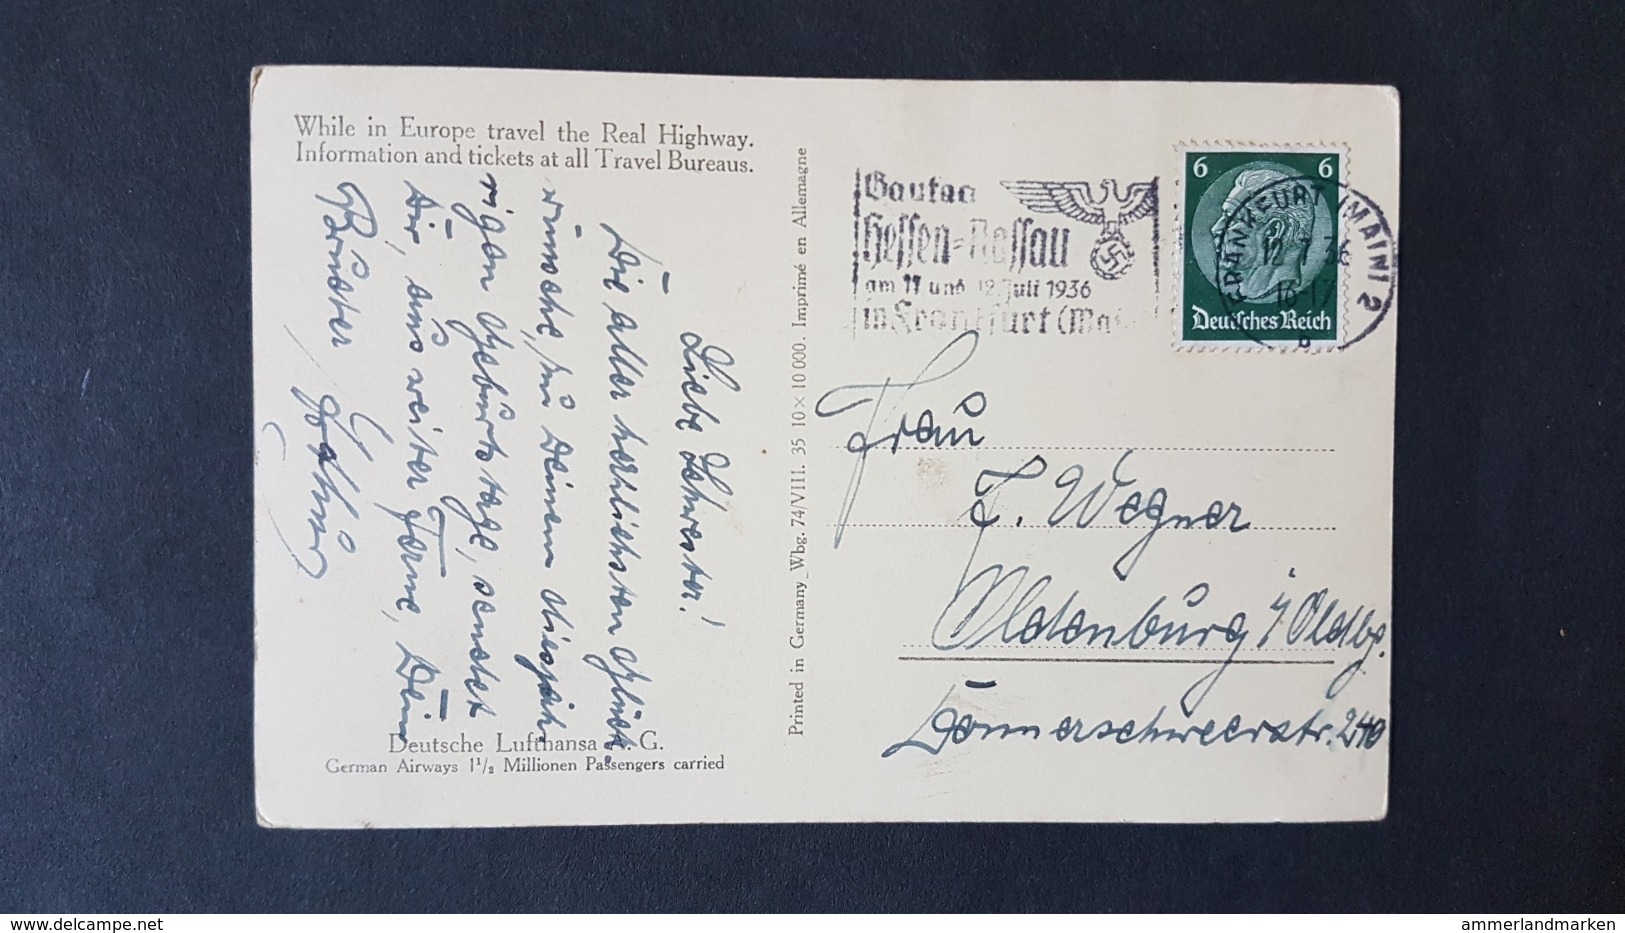 While in Europe travel the Real Highway.
Information and tickets at all Travel Bureaus.
Liebe Schwester!
Die aller herzlichsten Glück-
wünsche, zu Deinem diesjäh-
rigen Geburtstage, sendet
Dir, aus weiter Ferne, Dein
Bruder
Deutsche Lufthansa A. G.
German Airways 1½ Millionen Passengers carried
Printed in Germany Wbg. 74/VIII. 35 10×10000. Imprimé en Allemagne
Gautag
Hessen=Nassau
am 11 und 12. Juli 1936
in Frankfurt (Main)
6 6
Deutsches Reich
FRANKFURT (MAIN) 2
12.7.36
16-17
b
Frau
F. Wegner
Oldenburg i/Oldbg.
Donnerschweerstr. 240
delcampe.net
ammerlandmarken